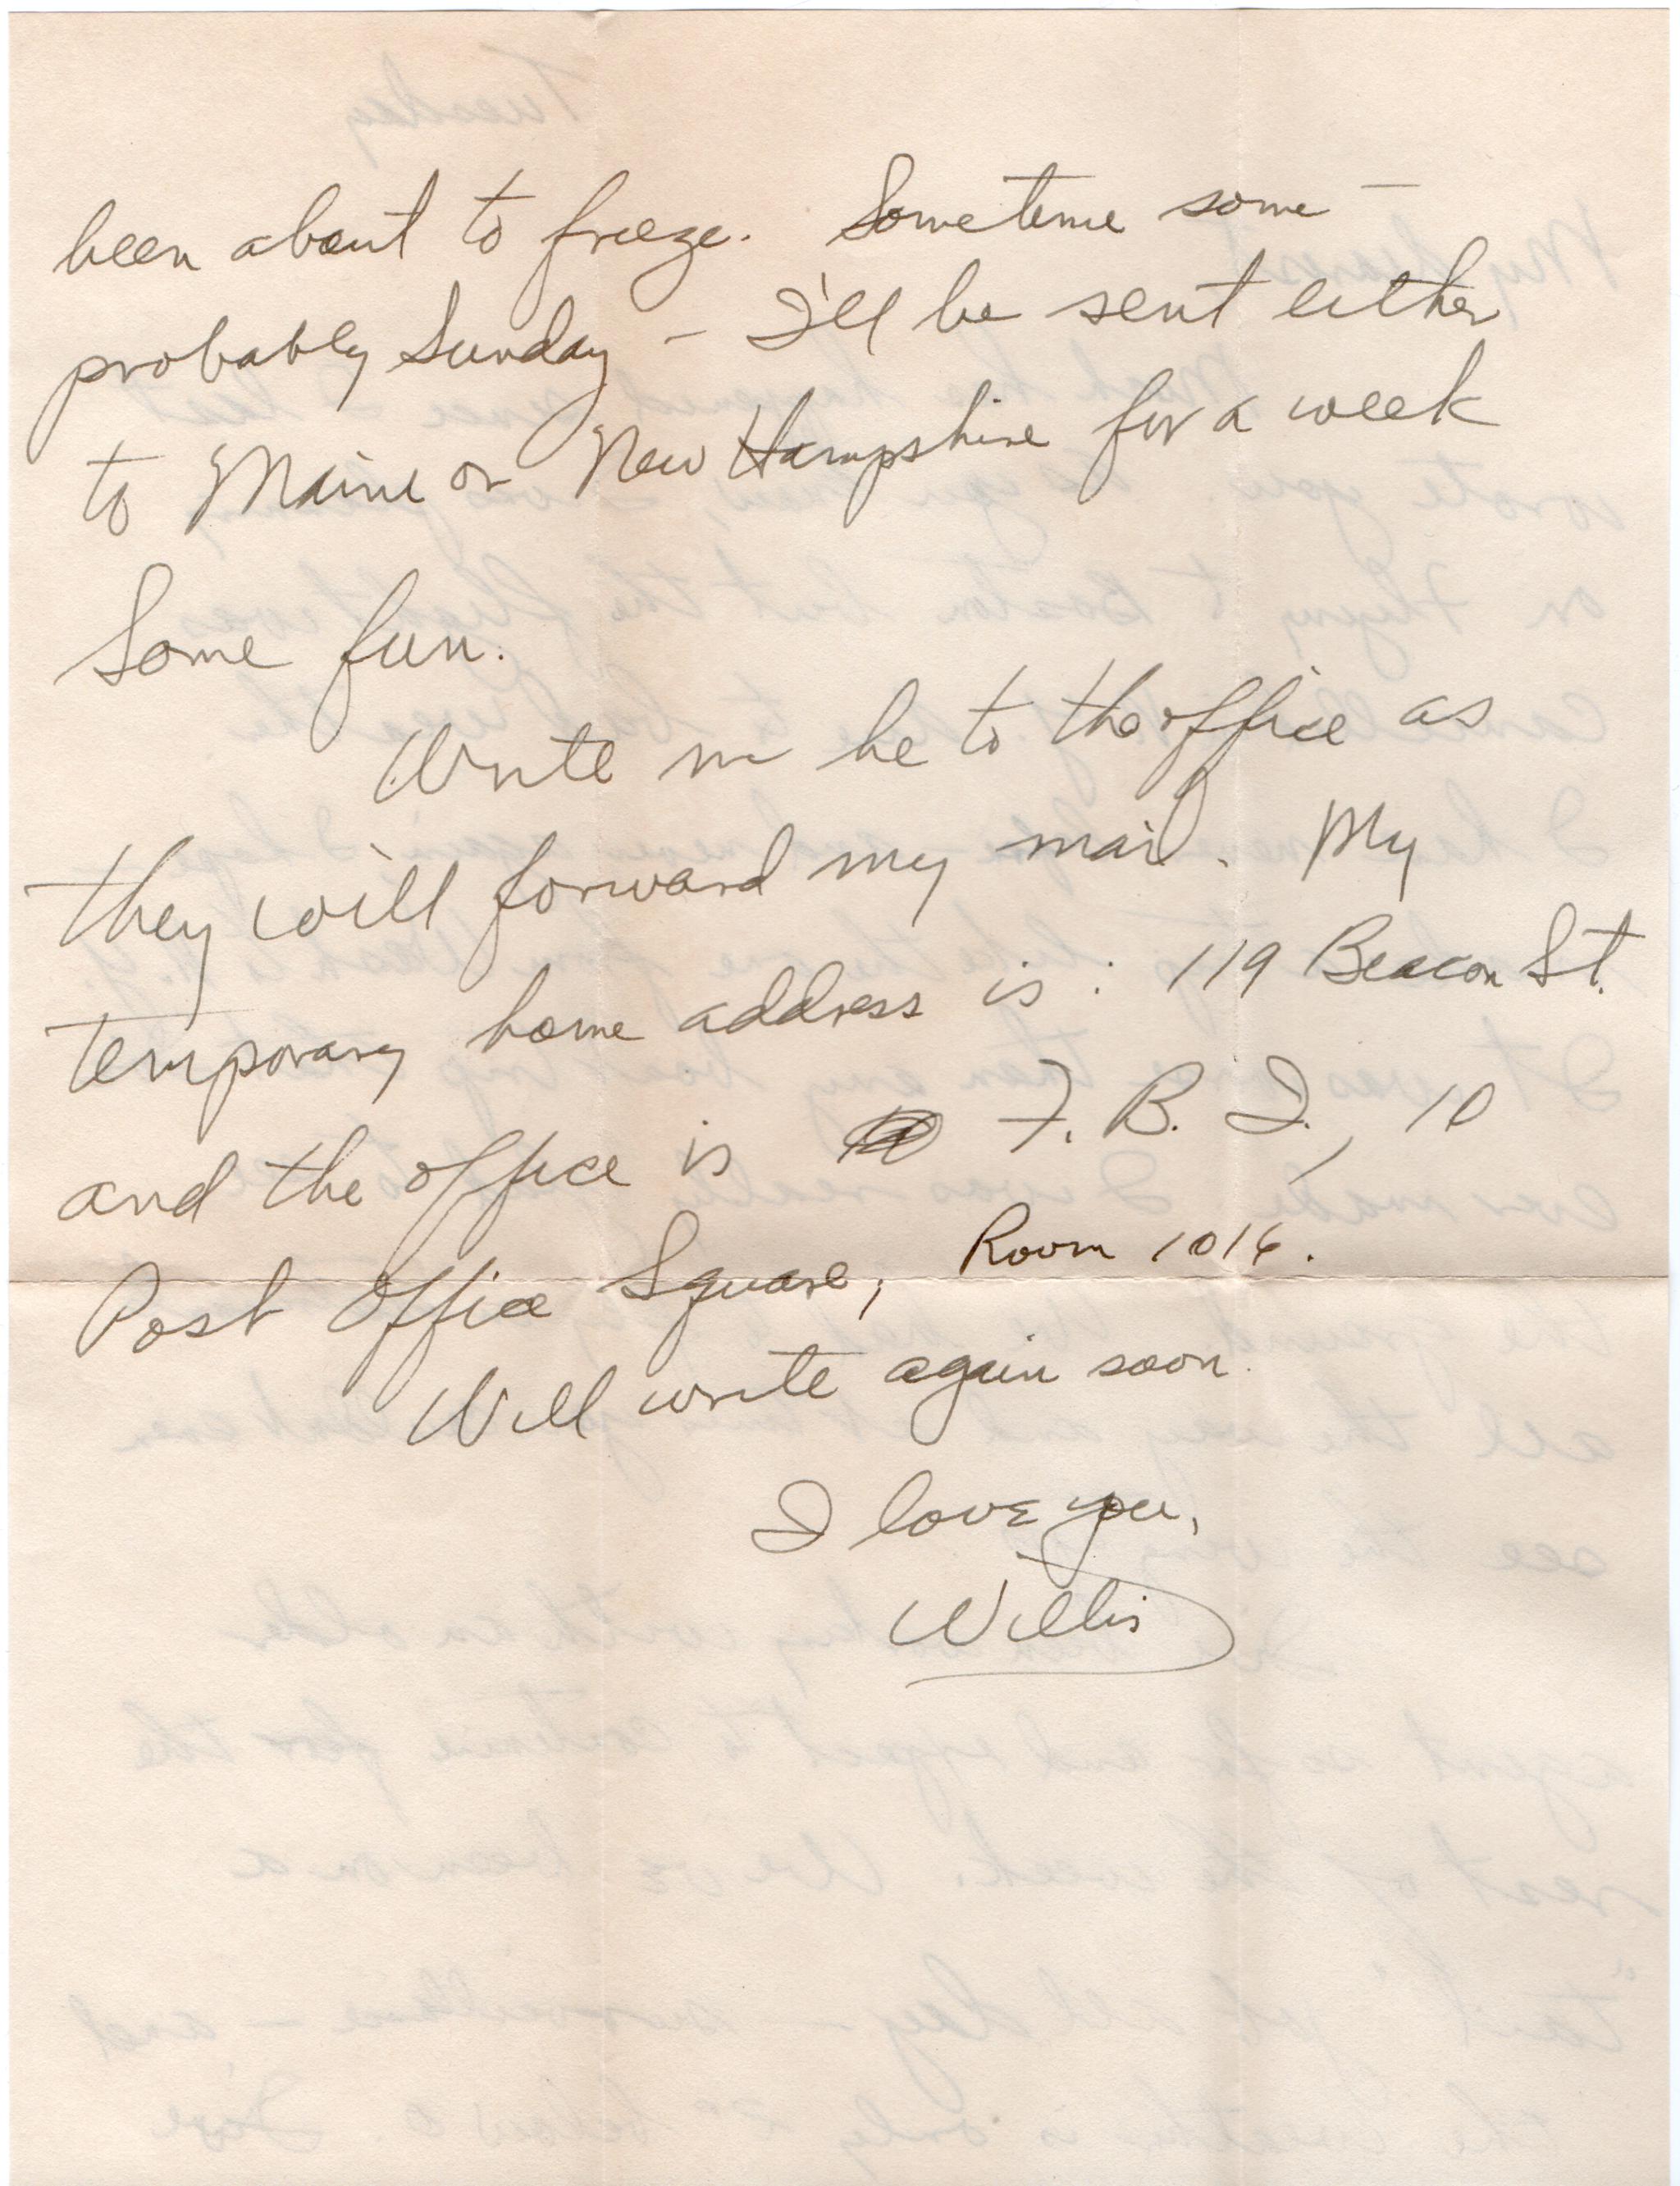 been about to freeze. Sometime some –
probably Sunday – I'll be sent either
to Maine or New Hampshire for a week
Some fun.
Write me he to the office as
they will forward my mail. My
temporary home address is : 119 Beacon St.
and the office is F. B. I., 10
Post Office Square, Room 1016.
Will write again soon.
I love you,
Willis